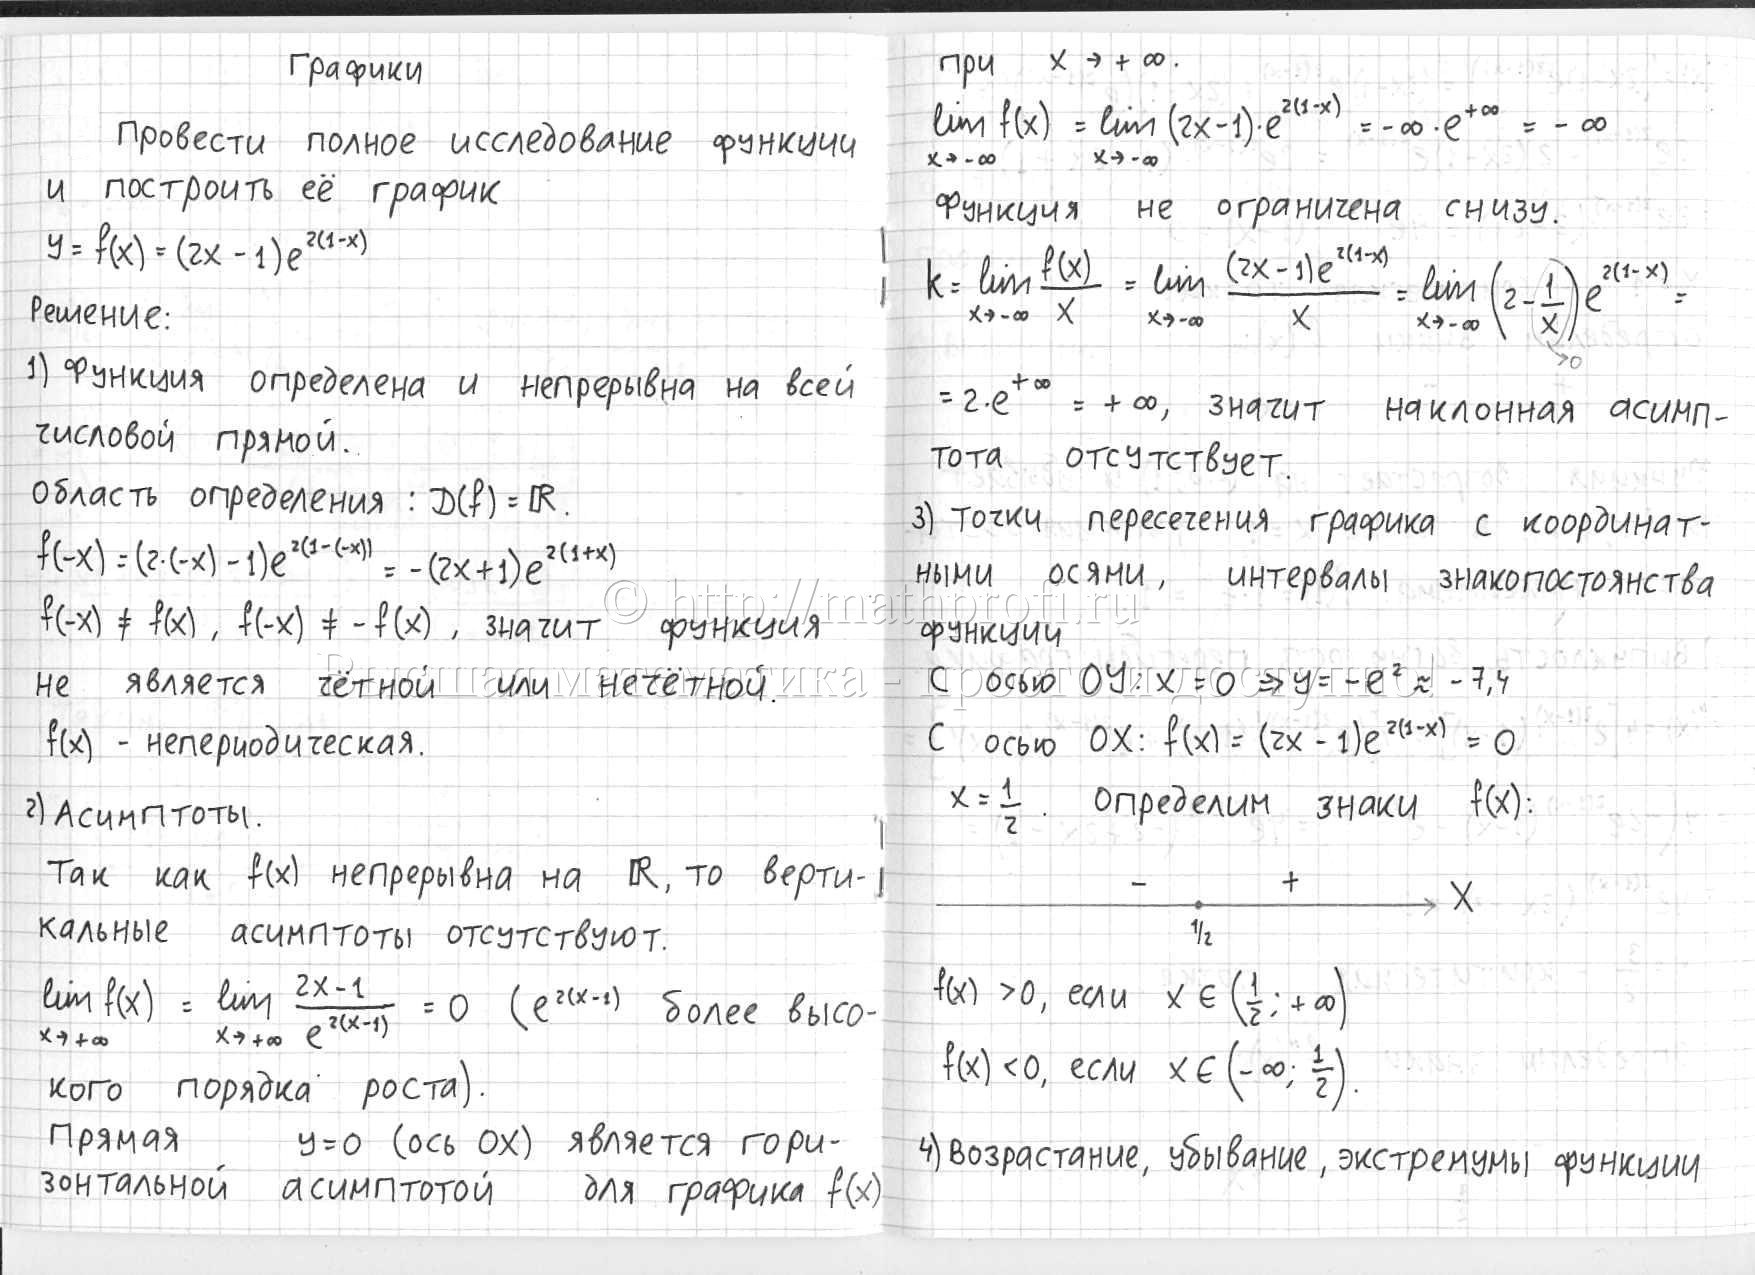 Графики
Провести полное исследование функции
и построить её график
y = f(x) = (2x - 1)e^{2(1-x)}
Решение:
1) Функция определена и непрерывна на всей
числовой прямой.
Область определения: D(f) = ℝ.
f(-x) = (2·(-x) - 1)e^{2(1-(-x))} = -(2x+1)e^{2(1+x)}
f(-x) ≠ f(x), f(-x) ≠ -f(x), значит функция
не является чётной или нечётной.
f(x) - непериодическая.
2) Асимптоты.
Так как f(x) непрерывна на ℝ, то верти-
кальные асимптоты отсутствуют.
lim_{x→+∞} f(x) = lim_{x→+∞} (2x-1)/e^{2(x-1)} = 0 (e^{2(x-1)} более высо-
кого порядка роста).
Прямая y=0 (ось OX) является гори-
зонтальной асимптотой для графика f(x)
при x → +∞.
lim_{x→-∞} f(x) = lim_{x→-∞} (2x-1)·e^{2(1-x)} = -∞·e^{+∞} = -∞
Функция не ограничена снизу.
k = lim_{x→-∞} f(x)/x = lim_{x→-∞} (2x-1)e^{2(1-x)}/x = lim_{x→-∞} (2 - 1/x)e^{2(1-x)} =
→0
= 2·e^{+∞} = +∞, значит наклонная асимп-
тота отсутствует.
3) Точки пересечения графика с координат-
ными осями, интервалы знакопостоянства
функции
С осью OY: x = 0 ⇒ y = -e² ≈ -7,4
С осью OX: f(x) = (2x - 1)e^{2(1-x)} = 0
x = 1/2. Определим знаки f(x):
- + X
1/2
f(x) > 0, если x ∈ (1/2; +∞)
f(x) < 0, если x ∈ (-∞; 1/2).
4) Возрастание, убывание, экстремумы функции
© http://mathprofi.ru
Высшая математика - просто и доступно!